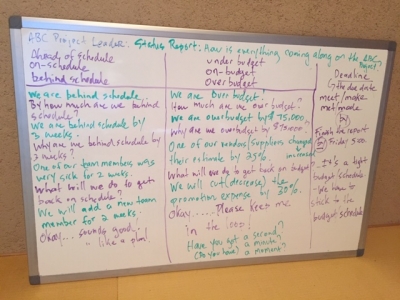 ABC Project Leader: Status Report: How is everything coming along on the ABC Project?
Ahead of schedule
on-schedule
behind schedule
under budget
on-budget
over budget
Deadline
the due date
meet/make
met/made
by
Finish the report
Friday 5:00
It's a tight
budget schedule
We have to
stick to the
budget schedule
We are behind schedule.
By how much are we behind
schedule?
We are behind schedule by
3 weeks.
Why are we behind schedule by
3 weeks?
One of our team members was
very sick for 2 weeks.
What will we do to get
back on schedule?
We will add a new team
member for 2 weeks.
Okay... sounds good!
" like a plan!
We are Over budget.
How much are we over budget?
We are overbudget by $75,000.
Why are we overbudget by $75,000?
One of our vendors/suppliers changed
their estimate by 25%.
What will we do to get back on budget
We will cut (decrease) the
promotion expense by 20%.
Okay.... Please keep me
in the loop!
Have you got a second?
(Do you have) a minute?
a moment?